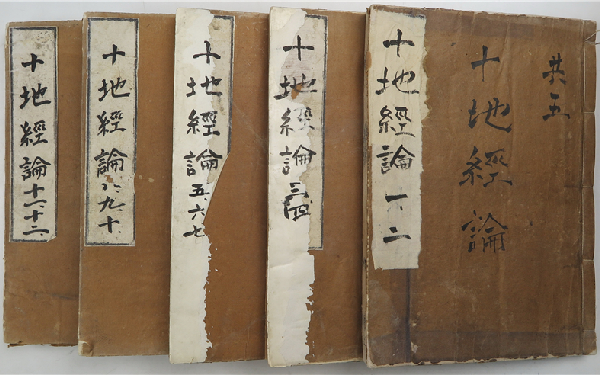 共五
十地經論
十地經論 一二
十地經論 三四
十地經論 五六七
十地經論 八九十
十地經論 十一十二